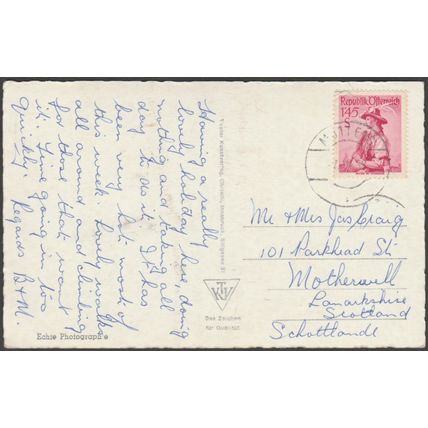 Having a really
lovely holiday here, doing
nothing and taking all
day to do it. It has
been very hot most of
this week. Lovely walks
all around and climbing
for those that want
it. Time going in too
quickly. Regards B & M.
Echte Photographie
Das Zeichen
für Qualität
Republik Österreich
1.45
S
Mr & Mrs Jas Craig
101 Parkhead St
Motherwell
Lanarkshire
Scotland
Schottlande